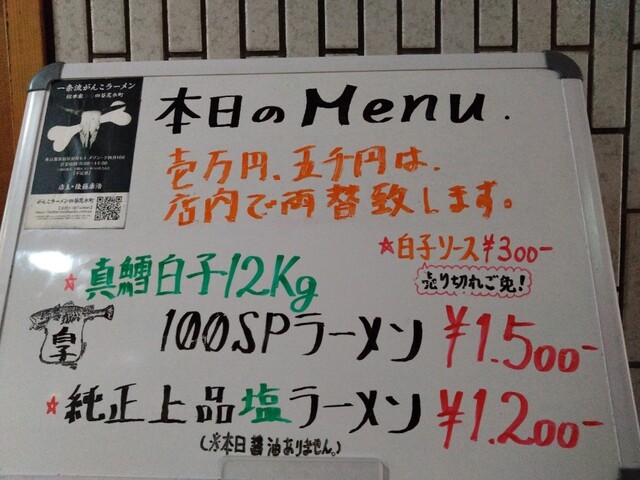 一条流がんこラーメン
四谷荒木町
店主・後藤泰浩
がんこラーメン四谷荒木町
本日のMenu.
壱万円、五千円は、
店内で両替致します。
☆白子ソース¥300-
売り切れご免!
☆真鱈白子12Kg
白子
100SPラーメン ¥1.500-
☆純正上品塩ラーメン ¥1.200-
(※本日醤油ありません。)